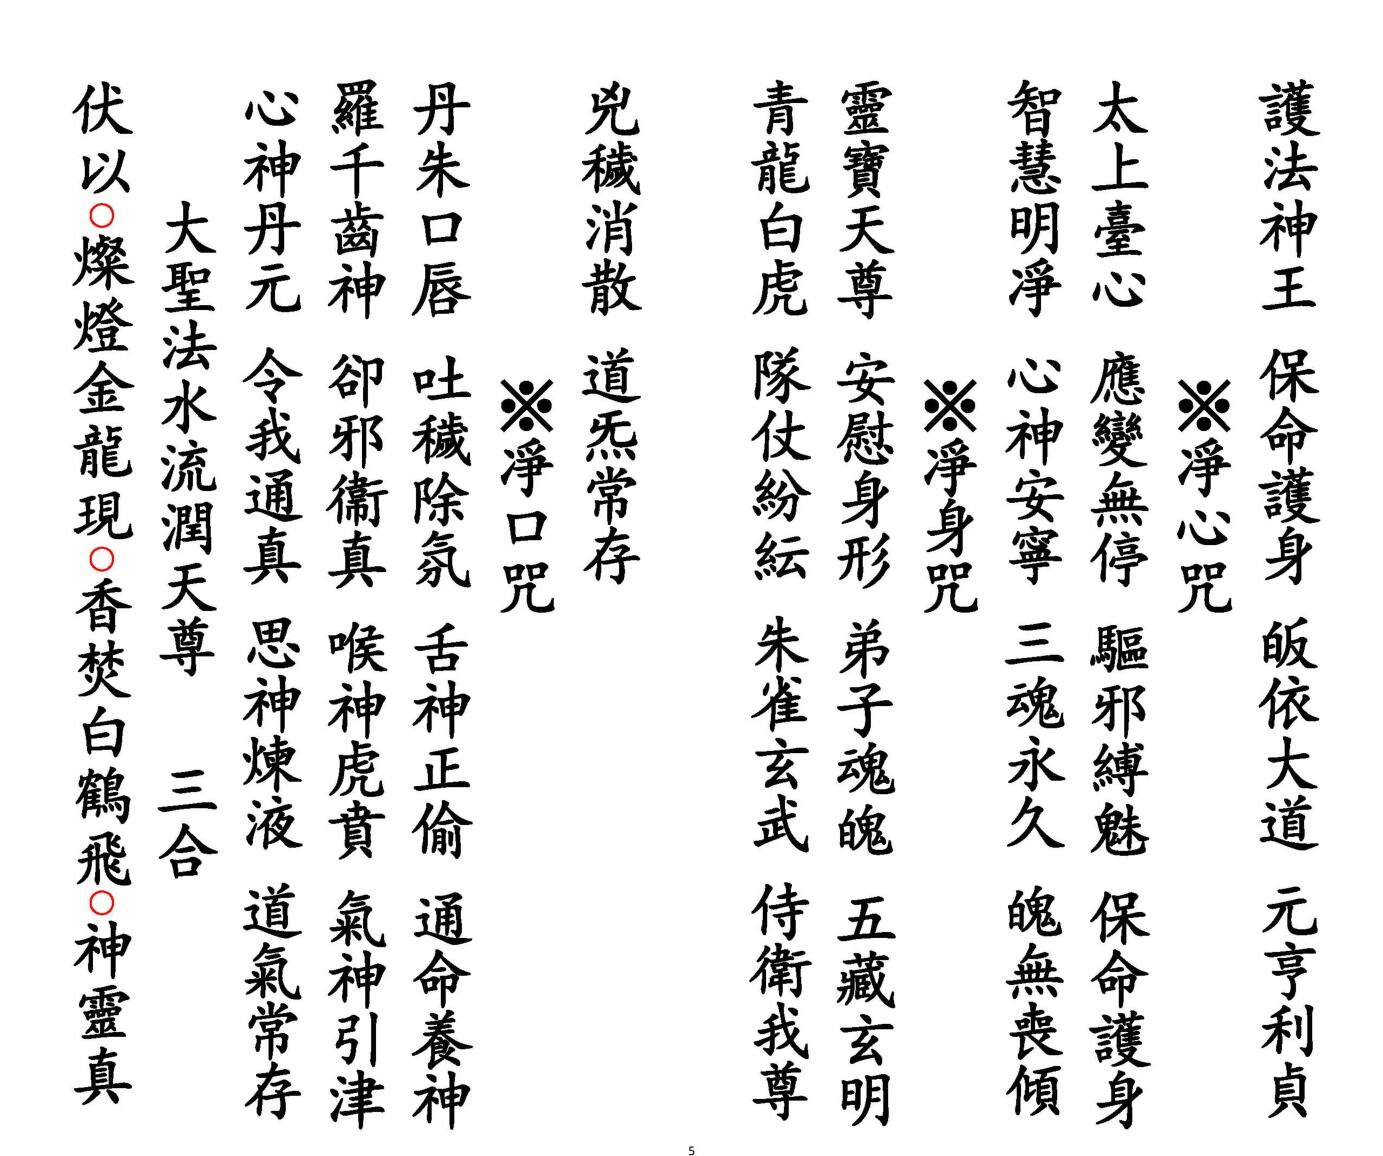 護法神王 保命護身 皈依大道 元亨利貞
※淨心咒
太上臺心 應變無停 驅邪縛魅 保命護身
智慧明淨 心神安寧 三魂永久 魄無喪傾
※淨身咒
靈寶天尊 安慰身形 弟子魂魄 五藏玄明
青龍白虎 隊仗紛紜 朱雀玄武 侍衛我尊
兇穢消散 道炁常存
※淨口咒
丹朱口唇 吐穢除氛 舌神正偷 通命養神
羅千齒神 卻邪衞真 喉神虎賁 氣神引津
心神丹元 令我通真 思神煉液 道氣常存
大聖法水流潤天尊 三合
伏以○燦燈金龍現○香焚白鶴飛○神靈真
5